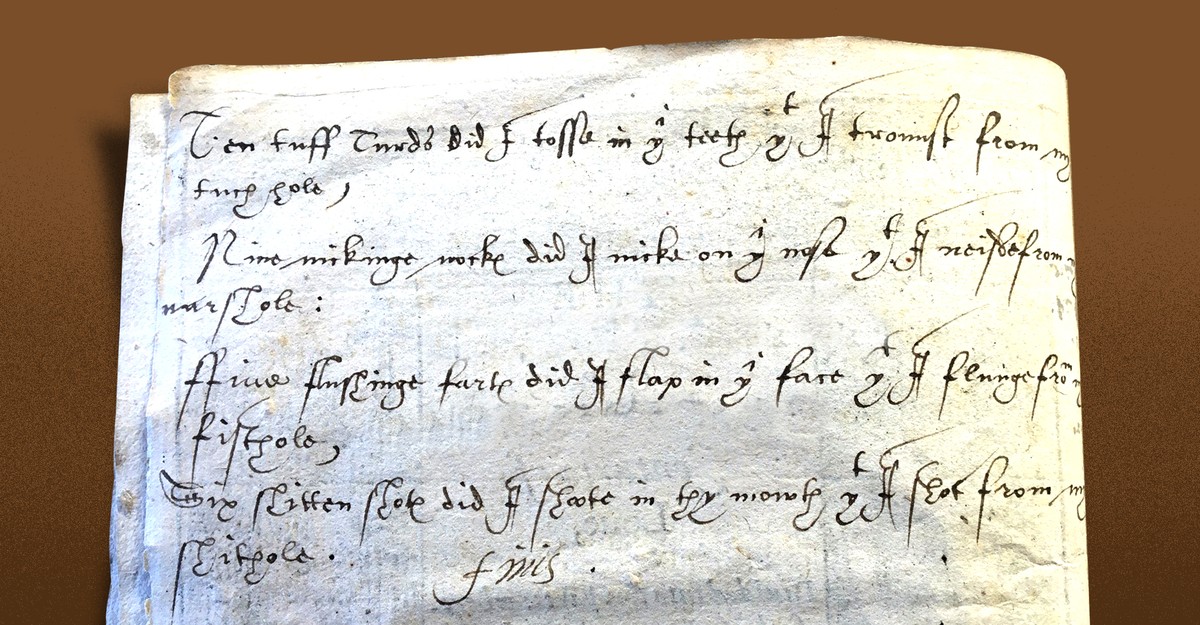 Ten tuff Turds did I tosse in yͥ teeth yͭ I trounst from my
tuch hole,
Nine nickinge nockes did I nicke on yͥ nose yͭ I neisde from
narshole :
ffiue flushinge fartes did I flap in yͥ face yͭ I flunge from
fisthole,
Six shitten shotes did I shoote in thy mowth yͭ I shot from my
shithole .
finis .